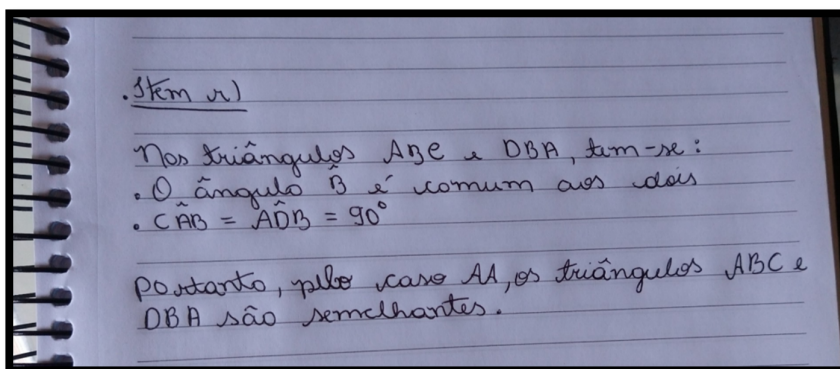 .Item c)
Nos triângulos ABC e DBA, tem-se:
. O ângulo B̂ é comum aos dois
. CÂB = AD̂B = 90°
Portanto, pelo caso AA, os triângulos ABC e
DBA são semelhantes.